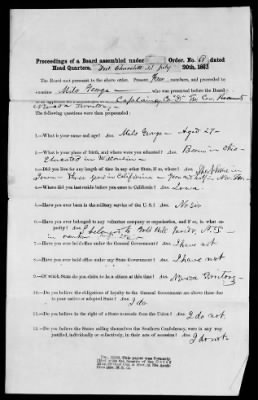 Proceedings of a Board assembled under Order, No. 61 dated
Head Quarters, Fort Churchill N.T. July 20th, 1863
The Board met pursuant to the above order. Present four members, and proceeded to
examine Milo George who was presented before the Board
Captaincy Co "D" 1st Cav Reserved
Nevada Territory
The following questions were then propounded:
1.—What is your name and age? Ans. Milo George — Aged 27—
2.—What is your place of birth, and where were you educated? Ans. Born in Ohio—
Educated in Wisconsin
3.—Did you live for any length of time in any other State, if so, where?
Iowa — Three years in California —
4.—Where did you last reside before you came to California? Ans. Iowa
5.—Have you ever been in the military service of the U.S.? Ans. No Sir
6.—Have you ever belonged to any volunteer company or organization, and if so, in what capacity? Ans. I belonged to Gold Hill Guards, N.T.
7.—Have you ever held office under the General Government? Ans. I have not
8.—Have you ever held office under any State Government? Ans. I have not
9.—Of which State do you claim to be a citizen at this time? Ans. Nevada Territory
10.—Do you believe the obligations of loyalty to the General Government are above those due
to your native or adopted State? Ans. I do
11.—Do you believe in the right of a State to secede from the Union? Ans. I do not
12.—Do you believe the States calling themselves the Southern Confederacy, were in any way
justified, individually or collectively, in their acts of secession? Ans. I do not